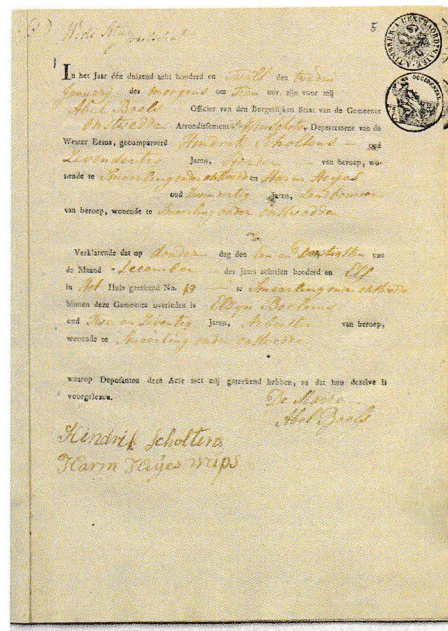 5
In het Jaar één duizend acht honderd en twalf den tweden
January des morgens om Tien uur, zijn voor mij
Abel Boels Officier van den Burgerlijken Staat van de Gemeente
onstwedde Arrondissement Winschoter Departement van de
Wester Eems, gecompareerd Hendrik Scholtens oud
Jaren, van beroep, wo-
nende te Smeerling onder onstwedde en Harm Heyes
oud Jaren, Landbouwer
van beroep, wonende te Smeerling onder onstwedde
Verklarende dat op donder dag den een en Dartigsten van
de Maand December des jaars achttien honderd en Elf
in het Huis geteekend No. 17 te Smeerling onder onstwedde
binnen deze Gemeente overleden is
oud Twe en Seventig Jaren, Arbeider van beroep,
wonende te Smeerling onder onstwedde
waarop Deposanten deze Acte met mij geteekend hebben, na dat hun dezelve is
voorgelezen. De Maire
Abel Boels
Hendrik Scholtens
Harm Heijes Weips